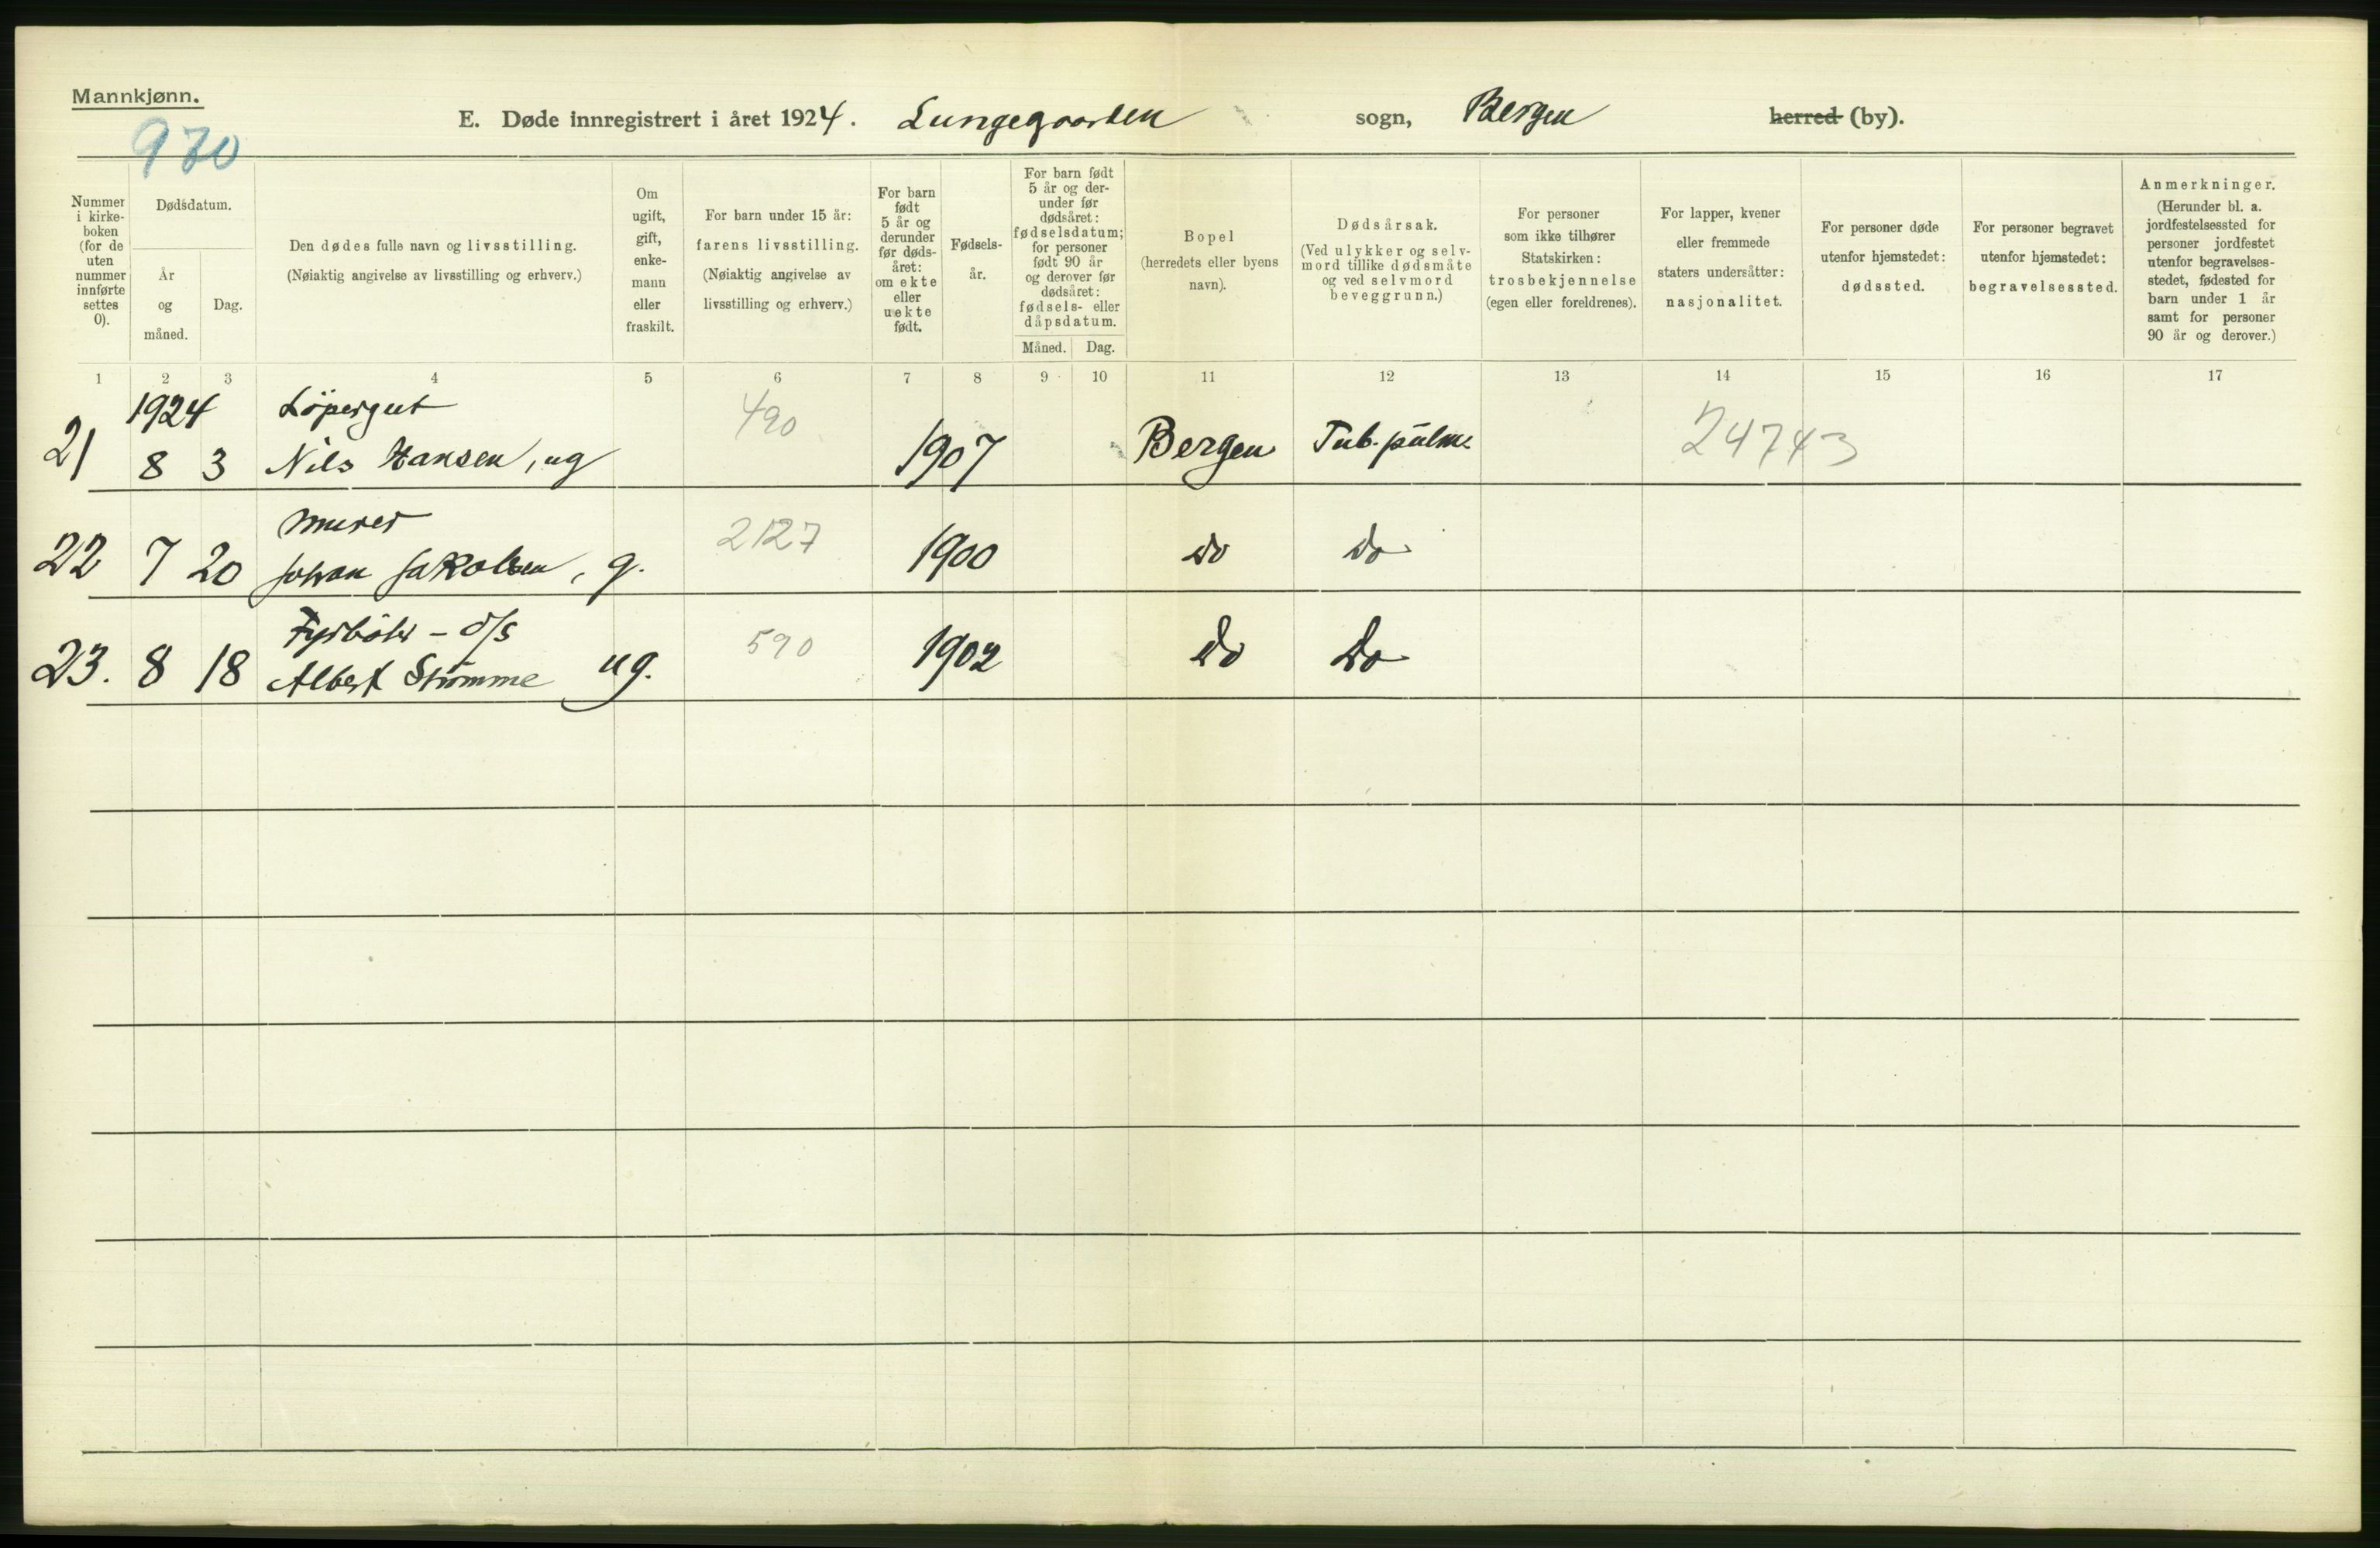 Mannkjønn.
970
E. Døde innregistrert i året 1924. Lungegaarden sogn, Bergen herred (by).
Nummer i kirke-boken (for de uten nummer innførte settes 0).
Dødsdatum.
År og måned.
Dag.
Den dødes fulle navn og livsstilling.
(Nøiaktig angivelse av livsstilling og erhverv.)
Om ugift, gift, enke-mann eller fraskilt.
For barn under 15 år: farens livsstilling.
(Nøiaktig angivelse av livsstilling og erhverv.)
For barn født 5 år og derunder før døds-året: om ekte eller uekte født.
Fødsels-år.
For barn født 5 år og der-under før dødsåret: fødselsdatum; for personer født 90 år og derover før dødsåret: fødsels- eller dåpsdatum.
Måned.
Dag.
Bopel (herredets eller byens navn).
Dødsårsak.
(Ved ulykker og selv-mord tillike dødsmåte og ved selvmord beveggrunn.)
For personer som ikke tilhører Statskirken: trosbekjennelse (egen eller foreldrenes).
For lapper, kvener eller fremmede staters undersåtter: nasjonalitet.
For personer døde utenfor hjemstedet: dødssted.
For personer begravet utenfor hjemstedet: begravelsessted.
Anmerkninger.
(Herunder bl. a. jordfestelsessted for personer jordfestet utenfor begravelses-stedet, fødested for barn under 1 år samt for personer 90 år og derover.)
1 2 3 4 5 6 7 8 9 10 11 12 13 14 15 16 17
1924 Løpergut 490
21 8 3 Nils Hansen, ug 1907 Bergen Tub. pulm. 24743
Murer 2127
22 7 20 Johan Jakobsen, g. 1900 Do Do
Fyrbøter - d/s 590
23. 8 18 Albert Strømme ug. 1902 Do Do